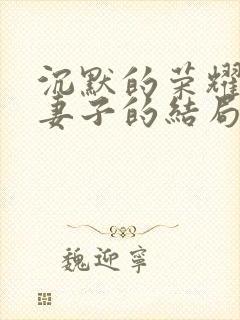 沉默的荣耀
妻子的結局
魏迎寧